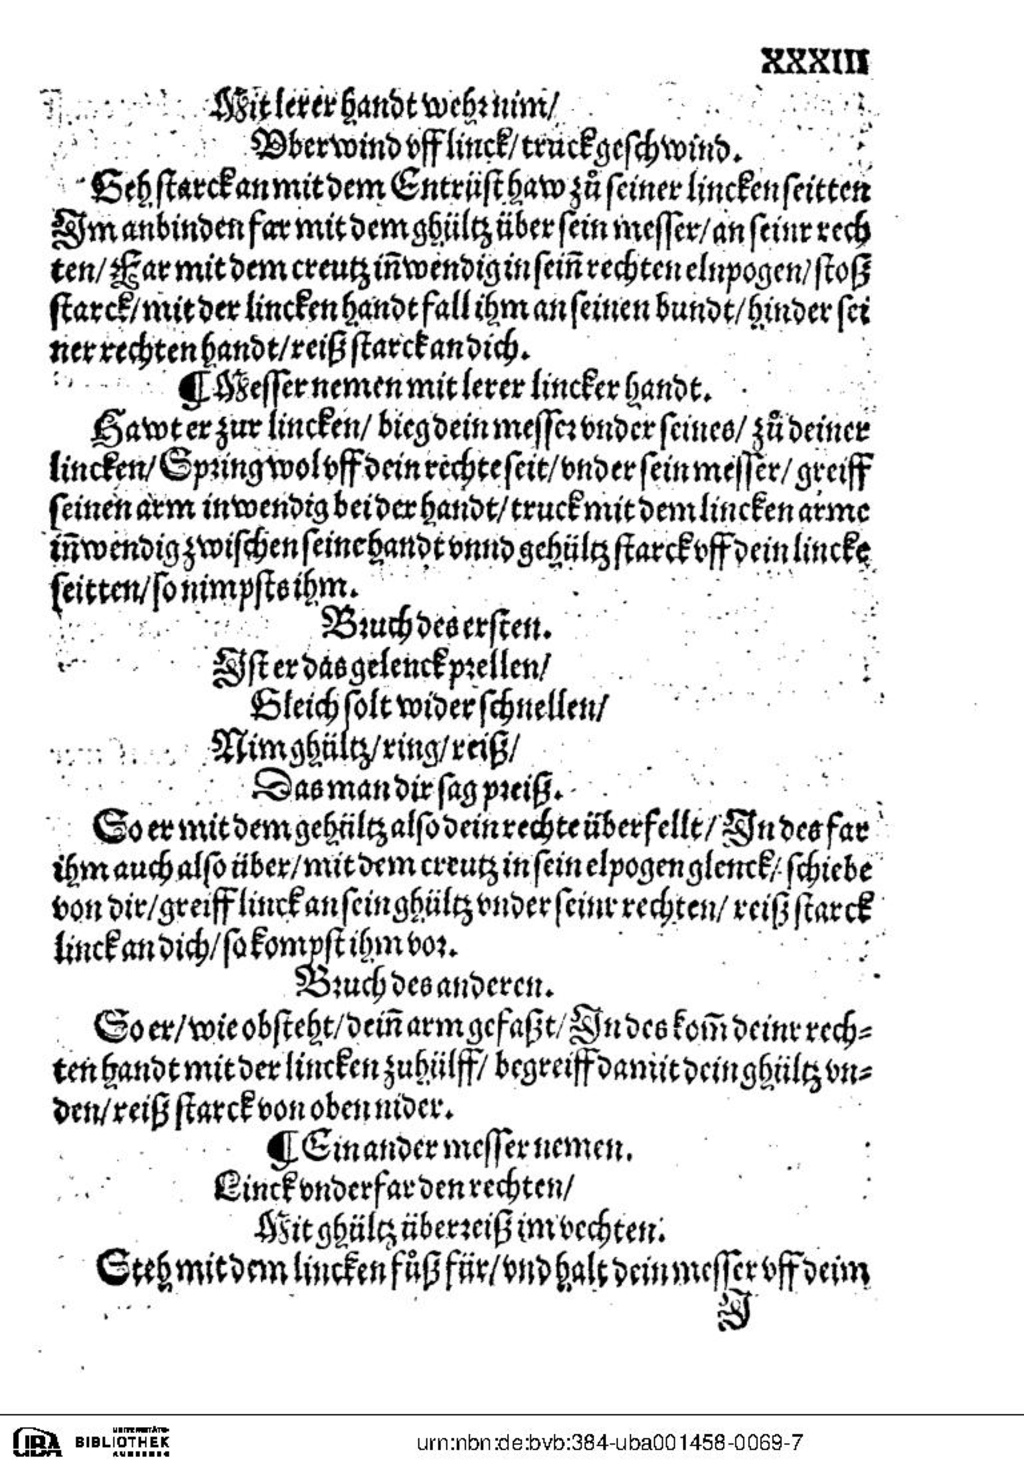 XXXIII
Mit lerer handt wehr nim/
Vberwind vff linck/ truck geschwind.
Geh starck an mit dem Entrüst haw zů seiner lincken seitten
Im anbinden far mit dem ghültz über sein messer/ an seinr rech
ten/ Far mit dem creutz in̄wendig in sein̄ rechten elnpogen/ stoß
starck/ mit der lincken handt fall ihm an seinen bundt/ hinder sei
ner rechten handt/ reiß starck an dich.
¶ Messer nemen mit lerer lincker handt.
Hawt er zur lincken/ bieg dein messer vnder seines/ zů deiner
lincken/ Spring wol vff dein rechte seit/ vnder sein messer/ greiff
seinen arm inwendig bei der handt/ truck mit dem lincken arme
in̄wendig zwischen seine handt vnnd gehültz starck vff dein lincke
seitten/ so nimpsts ihm.
Bruch des ersten.
Ist er das gelenck prellen/
Gleich solt wider schnellen/
Nim ghültz/ ring/ reiß/
Das man dir sag preiß.
So er mit dem gehültz also dein rechte überfellt/ In des far
ihm auch also über/ mit dem creutz in sein elpogen glenck/ schiebe
von dir/ greiff linck an sein ghültz vnder seinr rechten/ reiß starck
linck an dich/ so kompst ihm vor.
Bruch des anderen.
So er/ wie obsteht/ dein̄ arm gefaßt/ In des kom̄ deinr rech-
ten handt mit der lincken zuhülff/ begreiff damit dein ghültz vn-
den/ reiß starck von oben nider.
¶ Ein ander messer nemen.
Linck vnderfar den rechten/
Mit ghültz überreiß im vechten.
Steh mit dem lincken fůß für/ vnd halt dein messer vff deim
I
UBA UNIVERSITÄTS-
BIBLIOTHEK
AUGSBURG
urn:nbn:de:bvb:384-uba001458-0069-7